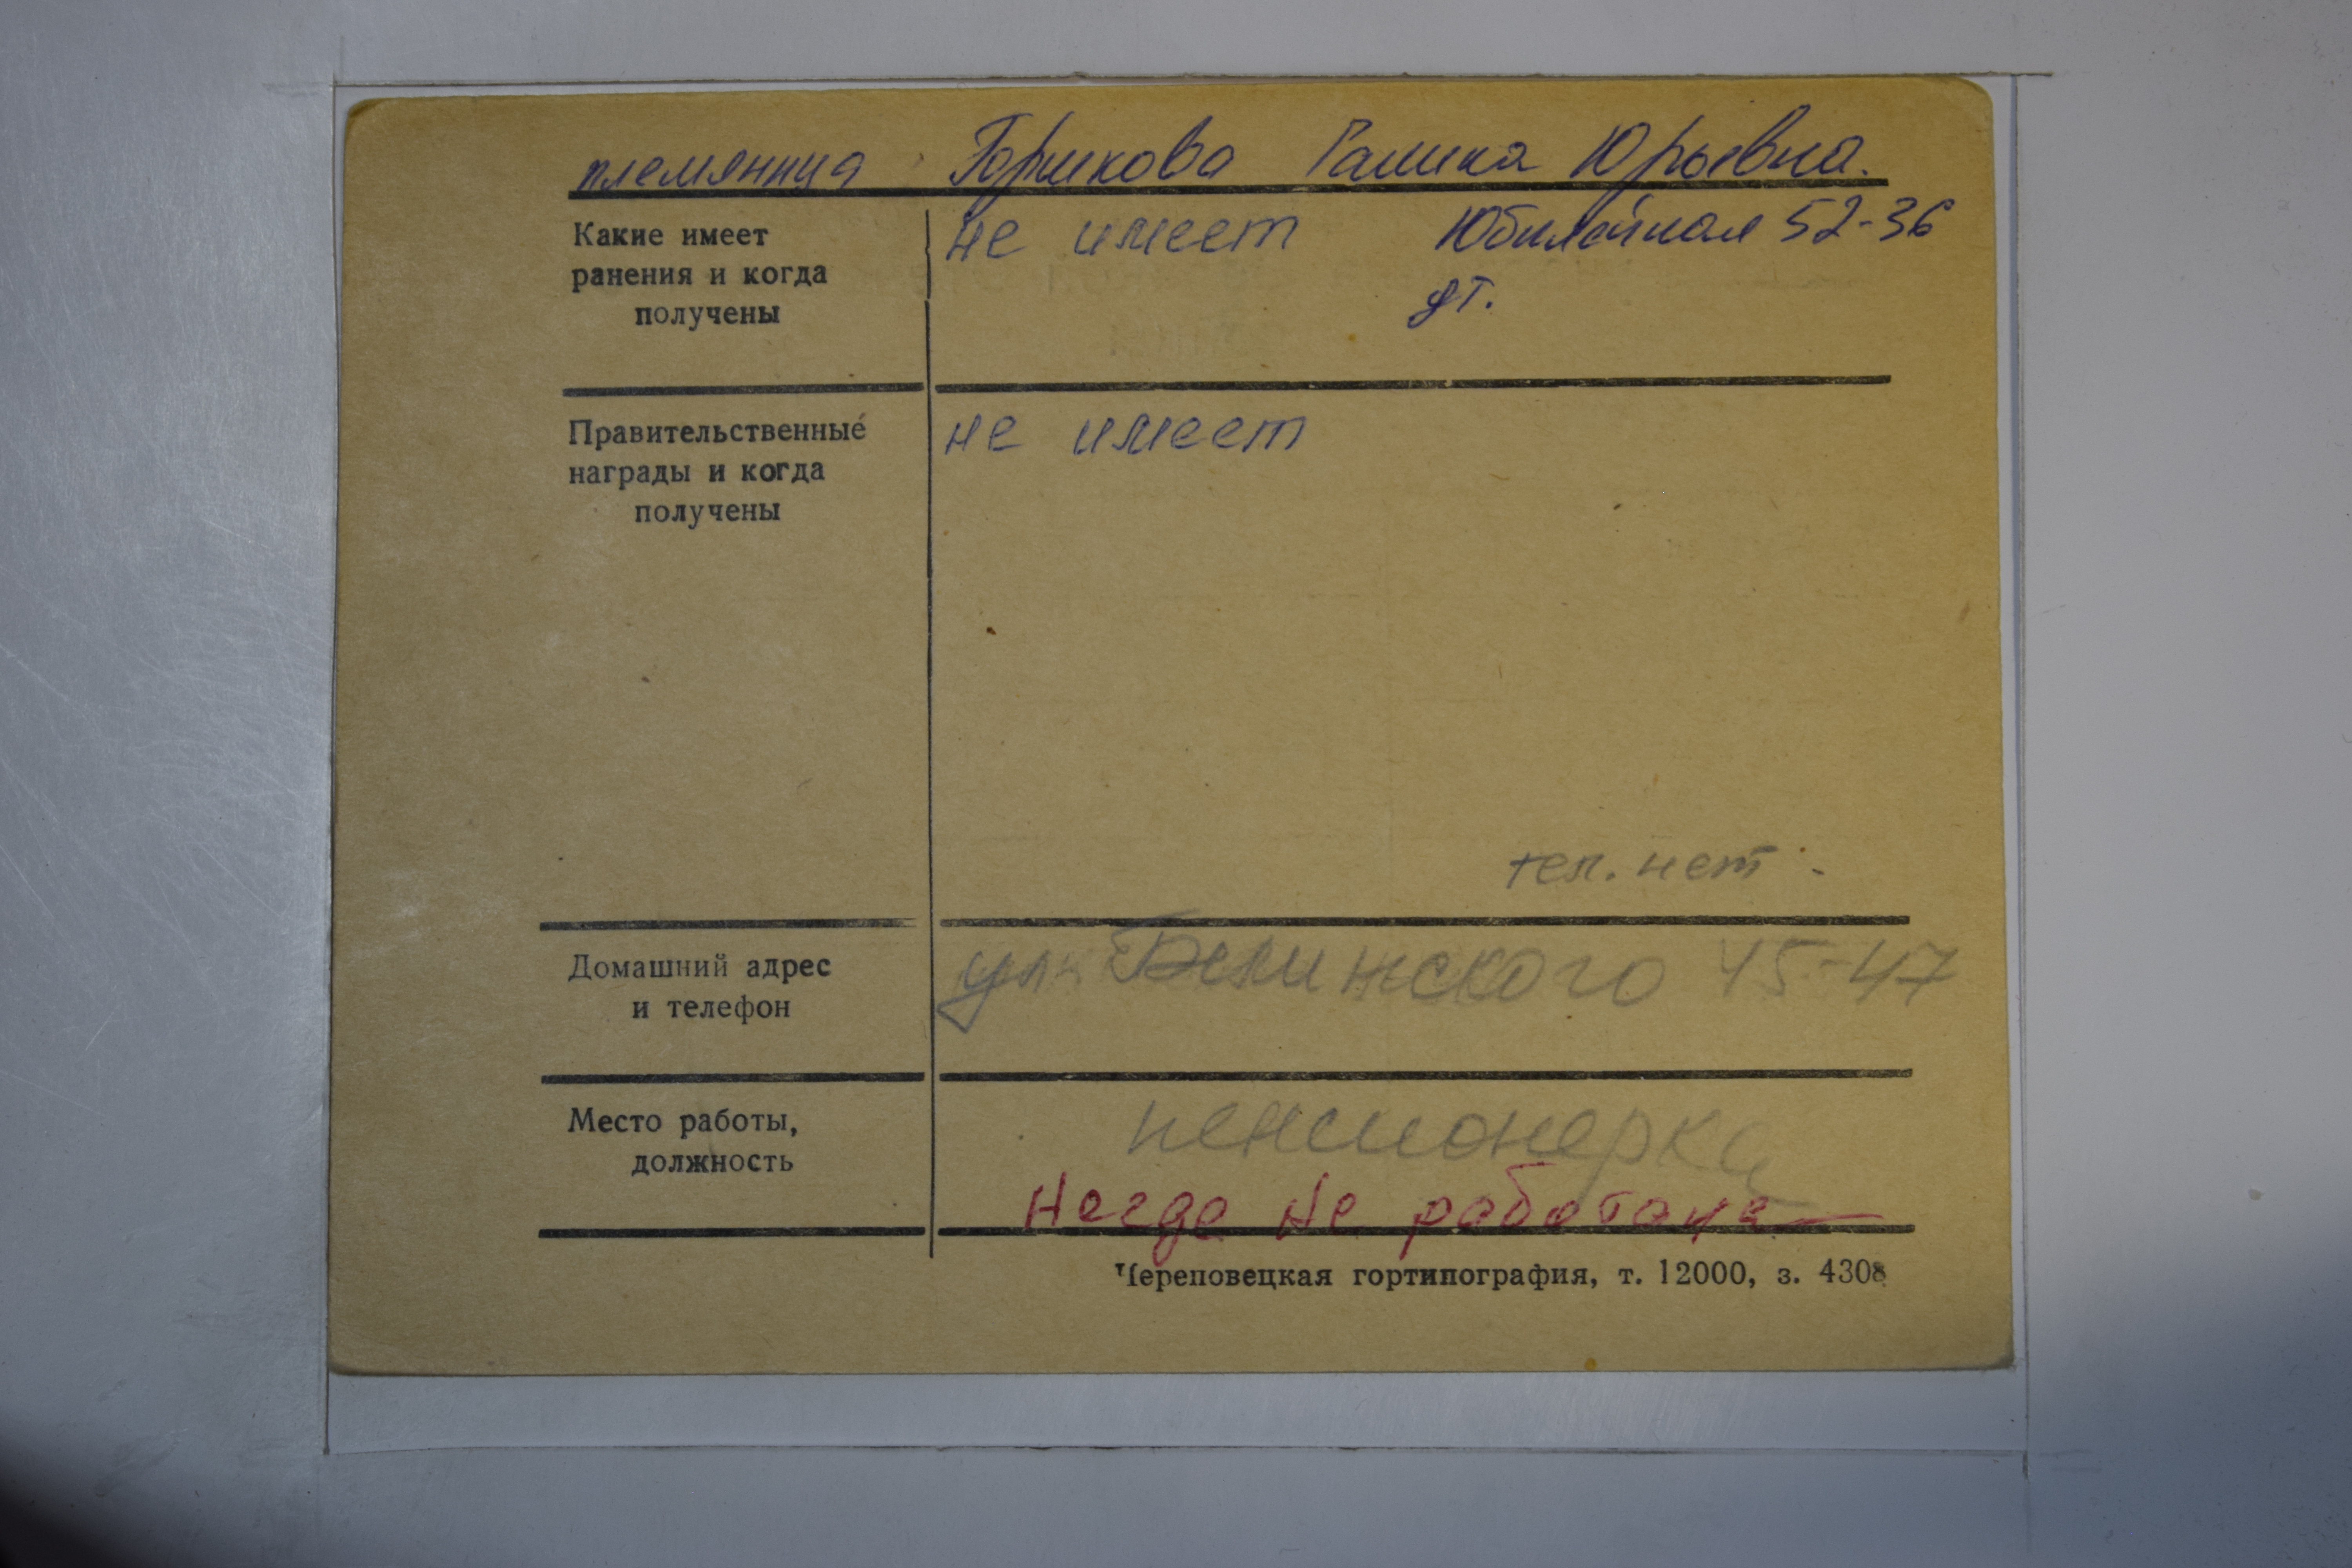 племянница Горшкова Галина Юрьевна.
Какие имеет
ранения и когда
получены
не имеет Юбилейная 52-36
дт.
Правительственные
награды и когда
получены
не имеет
тел. нет
Домашний адрес
и телефон
ул. Белинского 45-47
Место работы,
должность
пенсионерка
Негде не работала
Череповецкая гортипография, т. 12000, з. 4308